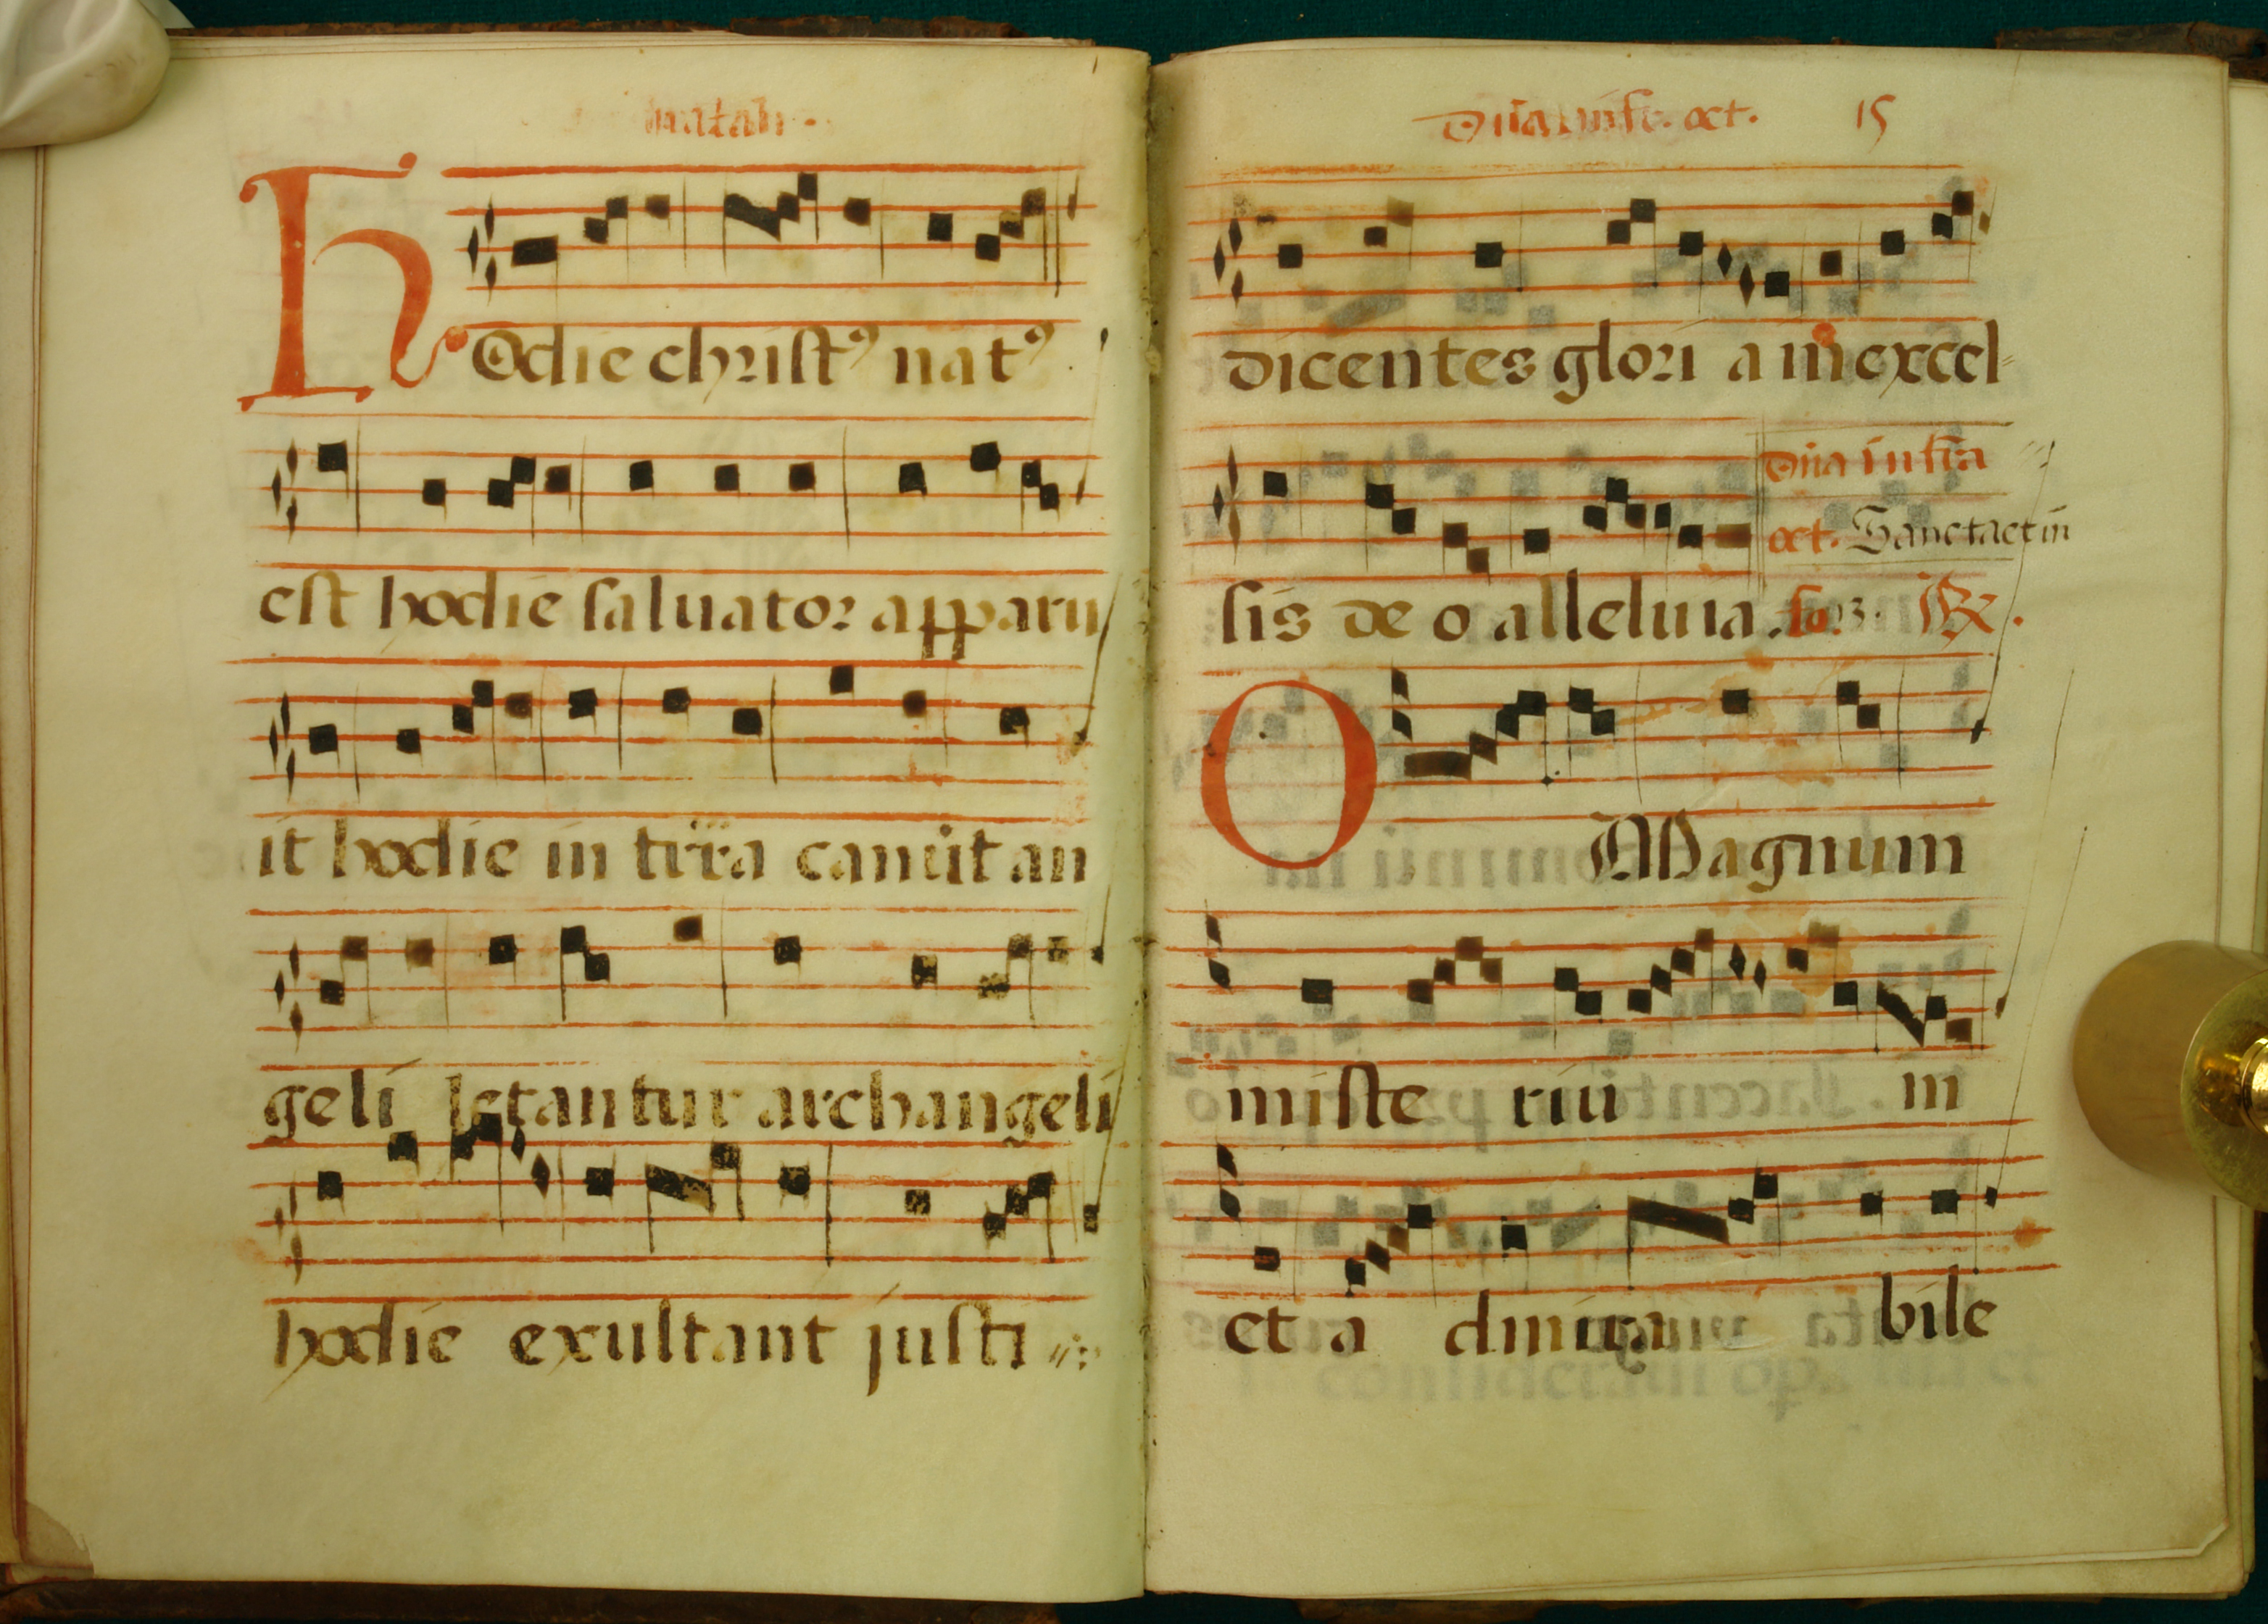 natali.
Hodie christꝰ natꝰ
est hodie saluator apparu
it hodie in tr̄ra canūt an
geli letantur archangeli
hodie exultant justi
Dn̄a infr. oct. 15
dicentes glori a in excel-
sis de o alleluia.
Dn̄a infra
oct. Sancta et in
fo. 13. ℟.
O Magnum
miste riū in
et a dmira bile